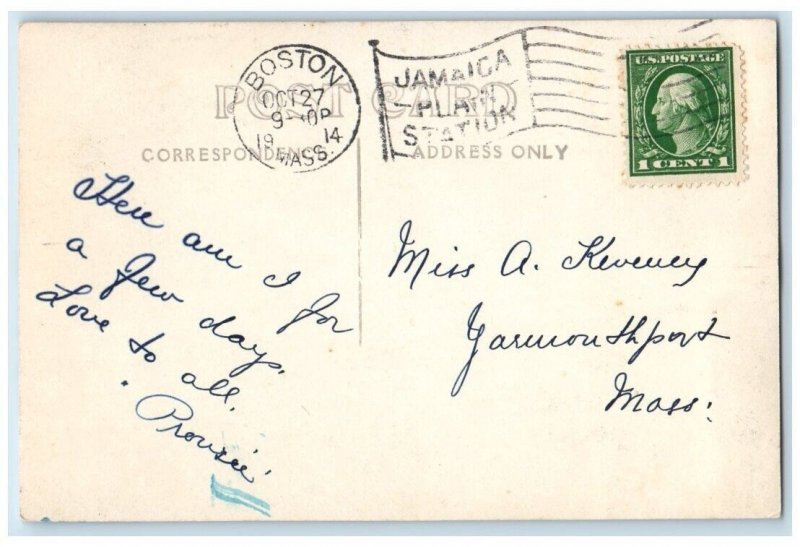 BOSTON
OCT 27
19 14
MASS.
JAMAICA
PLAIN
STATION
U.S. POSTAGE
1 CENT 1
POST CARD
CORRESPONDENCE
ADDRESS ONLY
Here am I for
a few days.
Love to all.
Miss A. Keveney
Yarmouthport
Mass.